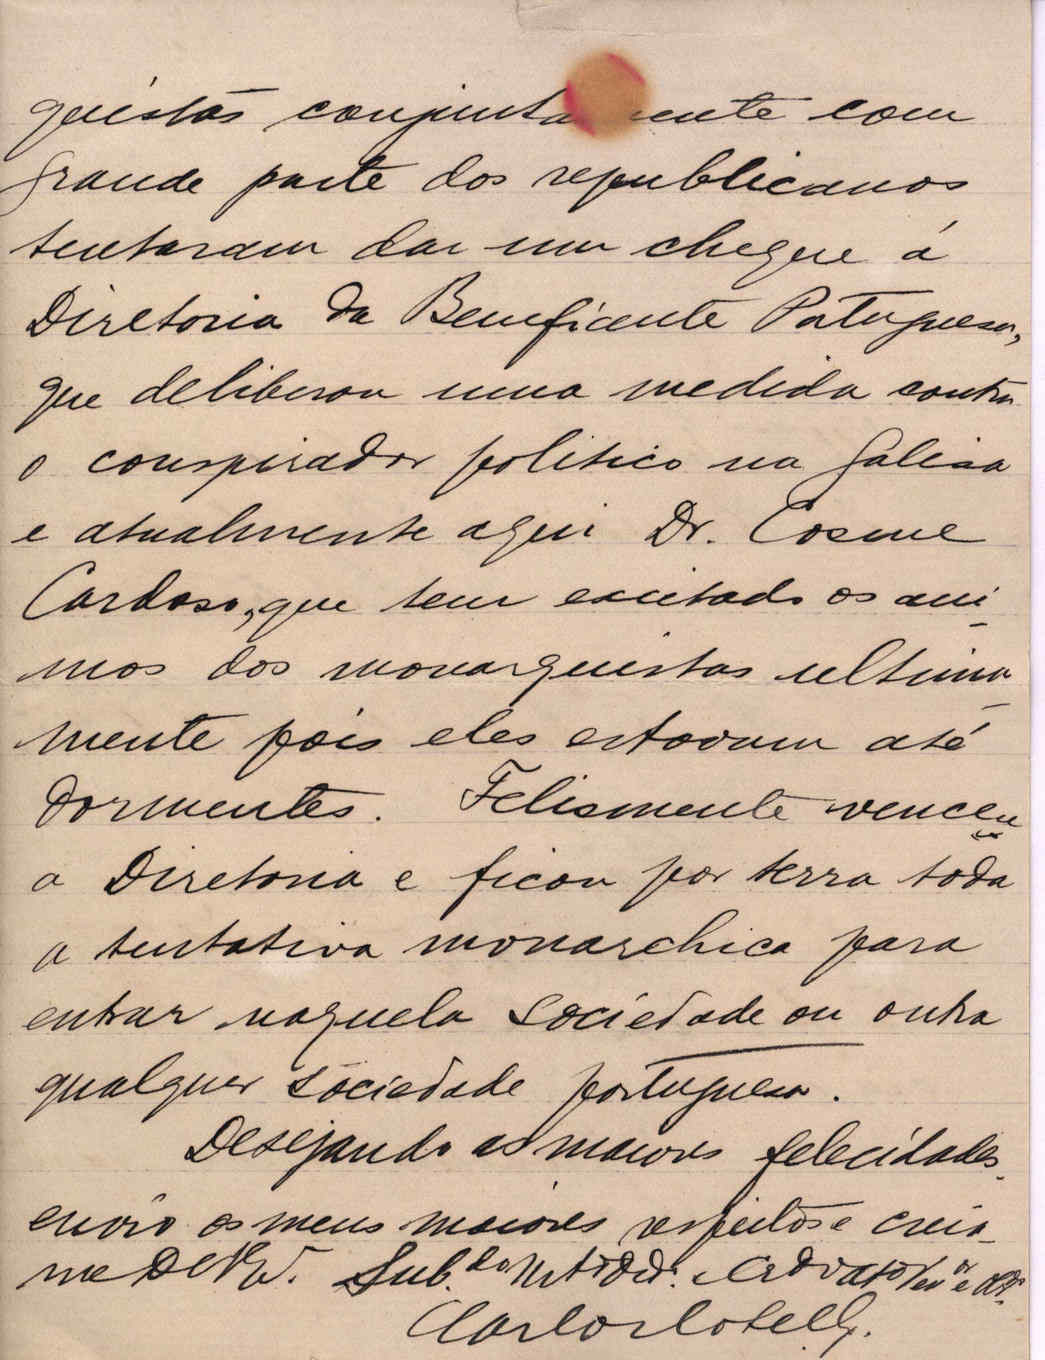 quistas conjuntamente com
grande parte dos republicanos
tentaram dar um cheque á
Diretoria da Beneficente Portuguesa,
que deliberou uma medida contra
o conspirador politico na Galisa
e atualmente aqui Dr. Cosme
Cardoso, que tem excitado os ani-
mos dos monarquistas ultima-
mente pois eles estavam até
dormentes. Felismente venceu
a Diretoria e ficou por terra toda
a tentativa monarchica para
entrar naquela sociedade ou outra
qualquer sociedade portuguesa.
Desejando as maiores felecidades
envio os meus maiores respeitos e creia-
me De V.
Carlos